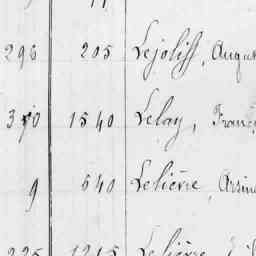 296 205 Lejoliff, Augus
310 1540 Lelay, Franç
9 640 Lelièvre, Arsin
225 1215 Lelièvre